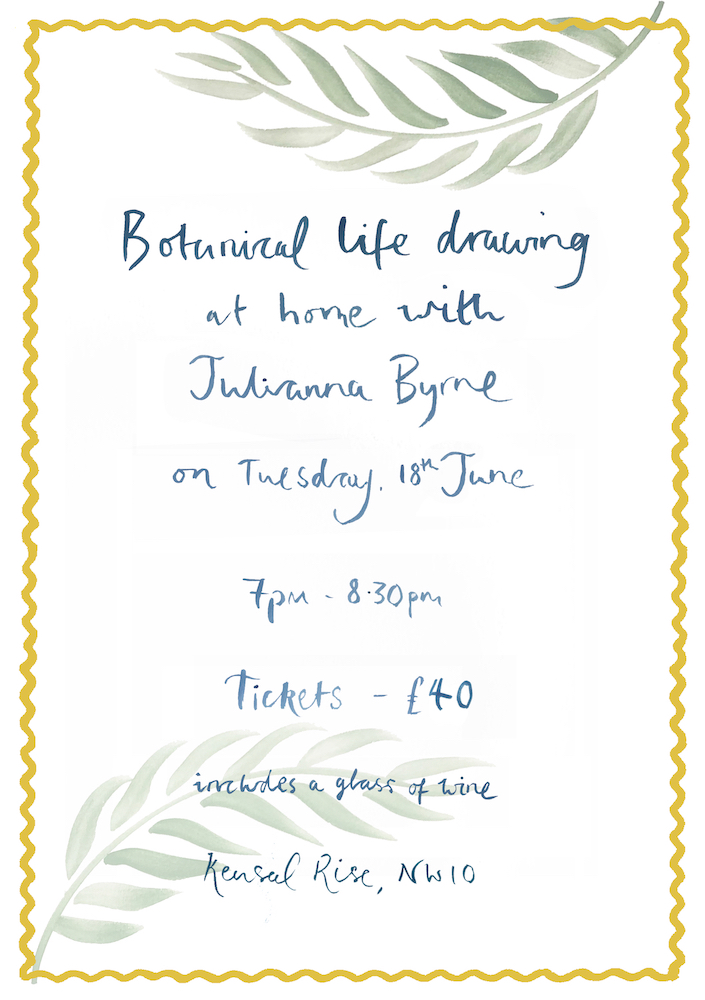 Botanical life drawing
at home with
Julianna Byrne
on Tuesday, 18th June
7pm - 8.30pm
Tickets - £40
includes a glass of wine
Kensal Rise, NW10